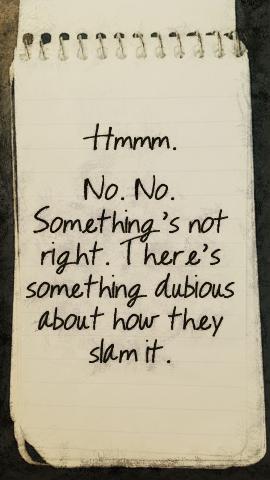 Hmmm.
No. No.
Something's not
right. There's
something dubious
about how they
slam it.